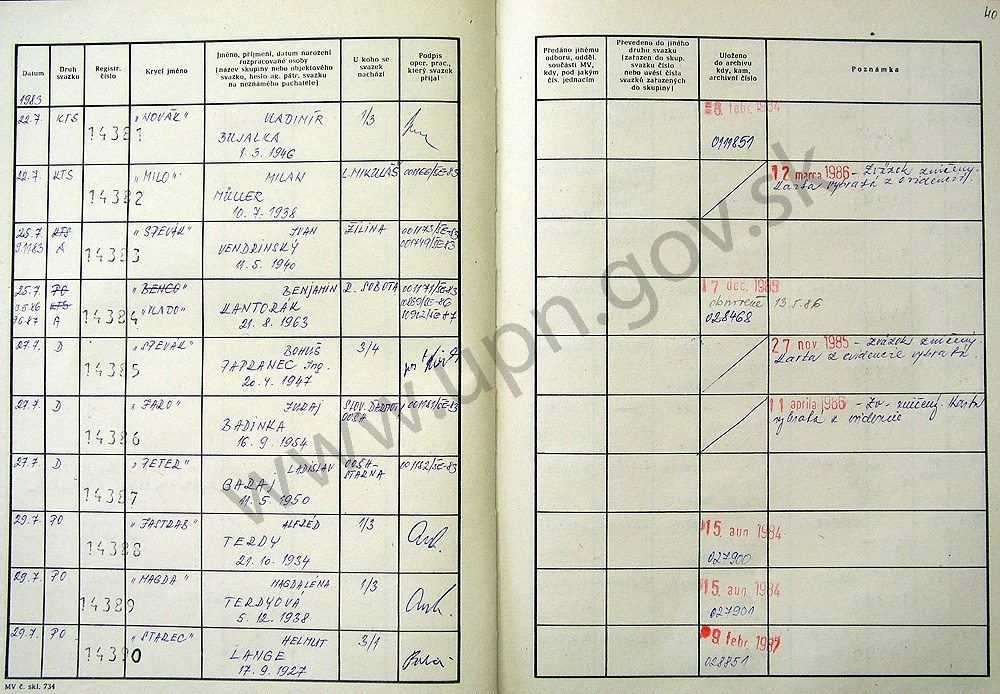 40
Datum
Druh svazku
Registr. číslo
Krycí jméno
Jméno, příjmení, datum narození
rozpracované osoby
(název skupiny nebo objektového
svazku, heslo ag. pátr. svazku
na neznámého pachatele)
U koho se
svazek
nachází
Podpis
oper. prac.,
který svazek
přijal
Předáno jinému
odboru, odděl.
součásti MV,
kdy, pod jakým
čís. jednacím
Převedeno do jiného
druhu svazku
(zařazen do skup.
svazku číslo
nebo uvést čísla
svazků zařazených
do skupiny)
Uloženo
do archivu
kdy, kam,
archivní číslo
Poznámka
1983
22.7. KTS 14381 „NOVÁK" VLADIMÍR 1/3
BUJALKA
1. 3. 1946
8 febr. 1984
0111851
22.7. KTS 14382 „MILO" MILAN L. MIKULÁŠ 001166/SE-83
MÜLLER
10. 7. 1938
12 marca 1986 - Zväzok zničený.
Karta vybratá z evidencie.
25.7. KTS 14383 „SPEVÁK" IVAN ŽILINA 001175/SE-83
9.11.83 A VENDRINSKÝ 001749/SE-83
11. 5. 1940
25.7. PO 14384 „BENCO" BENJAMÍN R. SOBOTA 001171/SE-83
KTS „VLADO" KANTORÁK
A 21. 8. 1963
17 dec. 1985
obnovené 13.5.86
028468
27.7. D 14385 „SPEVÁK" BOHUŠ 3/4
PAPRANEC Ing.
20. 4. 1947
27 nov. 1985 - Zväzok zničený.
Karta z evidencie vybratá.
27.7. D 14386 „FARO" JURAJ
BADINKA
16. 9. 1954
11 apríla 1986 - Zv. zničený. Karta
vybratá z evidencie
27.7. D 14387 „PETER" LADISLAV OOŠH- 001182/SE-83
BARAJ STARNA
11. 5. 1950
29.7. PO 14388 „JASTRAB" ALFRÉD 1/3
TERDY
21. 10. 1934
15. aun 1984
027900
29.7. PO 14389 „MAGDA" MAGDALÉNA 1/3
TERDYOVÁ
5. 12. 1938
15 aun 1984
027901
29.7. PO 14390 „STAREC" HELMUT 3/1
LANGE
17. 9. 1927
9 febr. 1987
028851
MV č. skl. 734
www.upn.gov.sk